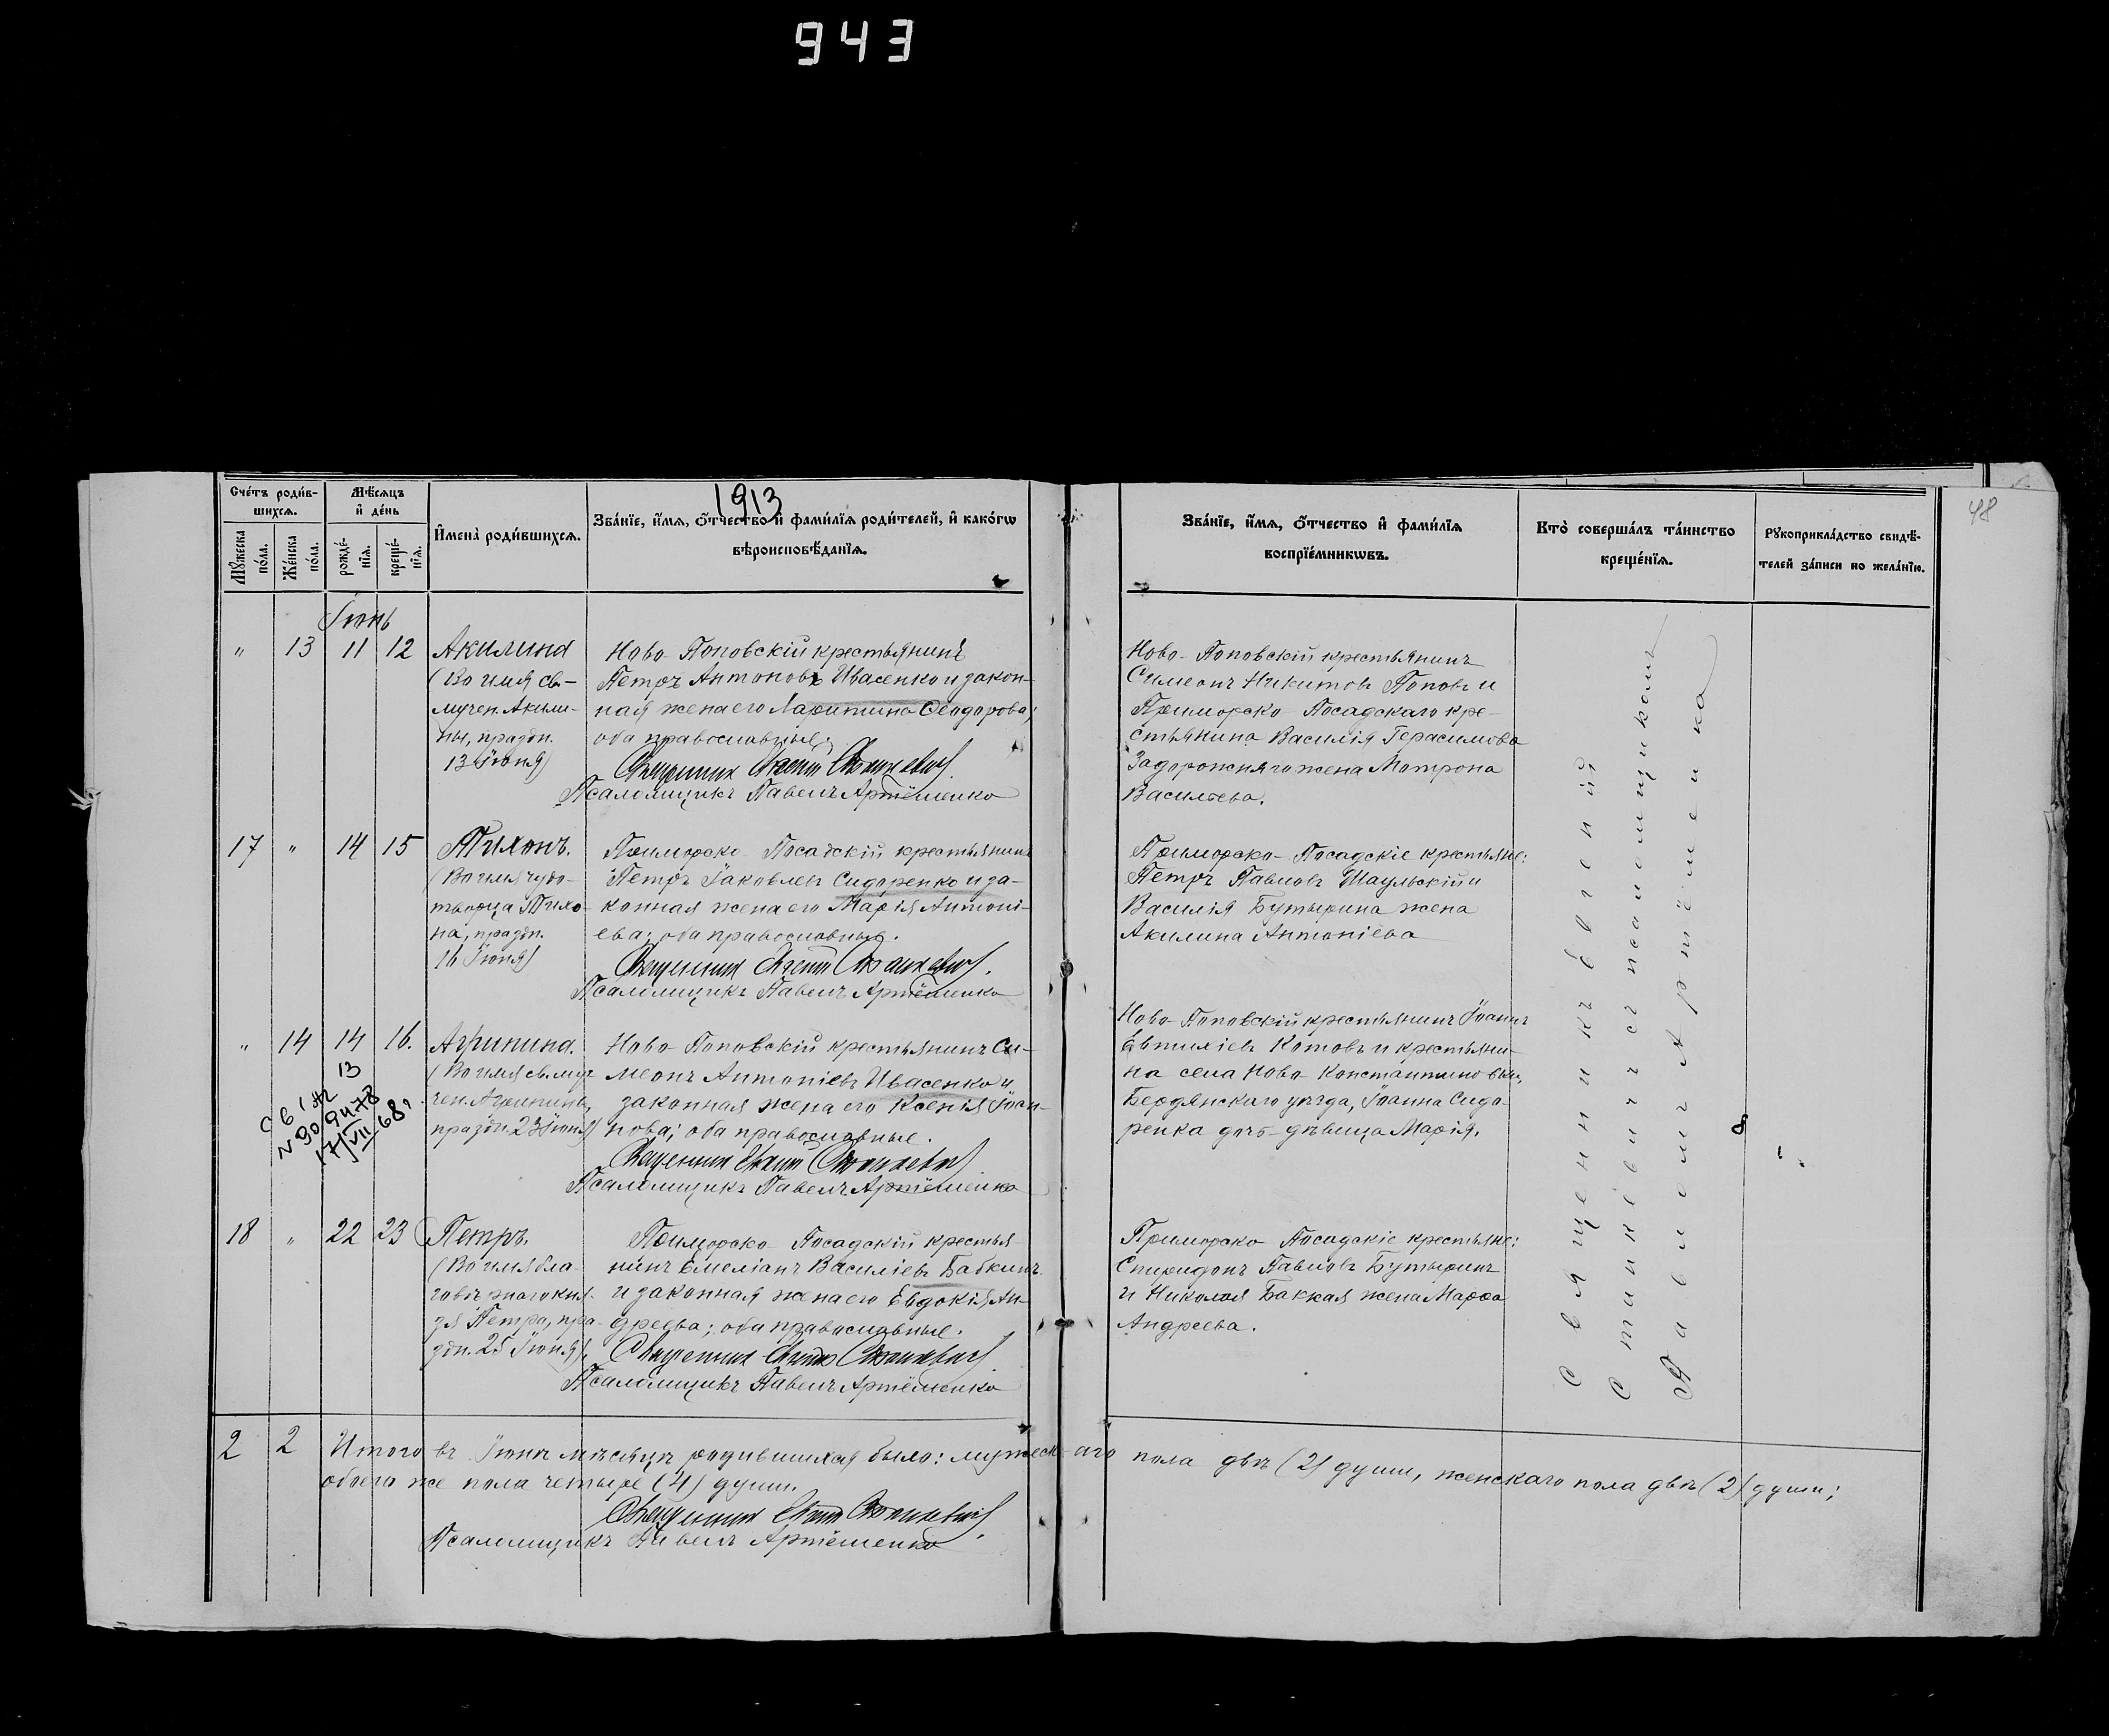 943
1913
48
Счéтъ роди́в-
шихся.
Мѣ́сяцъ
и҆ де́нь
Мꙋ́жеска
по́ла.
Же́нска
по́ла.
рожде́-
нїѧ.
креще́-
нїѧ.
И҆мена̀ роди́вшихсѧ.
Зва́нїе, и҆́мѧ, ѻ҆́тчество и҆ фами́лїѧ роди́телей, и҆ како́гѡ
вѣроисповѣ́данїѧ.
Зва́нїе, и҆́мѧ, ѻ҆́тчество и҆ фами́лїѧ
воспрїе́мникѡвъ.
Кто̀ соверша́лъ та́инство
креще́нїѧ.
Рꙋкоприкла́дство свидѣ́-
телей за́писи по жела́нїю.
Іюнь
" 13 11 12
Акилина
(Во имя св.
мучен. Акили-
ны, праздн.
13 Іюня)
Ново-Поповскій крестьянинъ
Петръ Антоновъ Ивасенко и закон-
ная жена его Харитина Ѳеодорова;
оба православные.
Священникъ Евгеній Станкевичъ
Псаломщикъ Павелъ Артёменко
Ново-Поповскій крестьянинъ
Симеонъ Никитовъ Поповъ и
Приморско-Посадскаго кре-
стьянина Василія Герасимова
Задорожняго жена Матрона
Васильева.
17 " 14 15
Тихонъ.
(Во имя чудо-
творца Тихо-
на, праздн.
16 Іюня)
Приморско-Посадскій крестьянинъ
Петръ Іаковлевъ Сидоренко и за-
конная жена его Марія Антоні-
ева; оба православные.
Священникъ Евгеній Станкевичъ.
Псаломщикъ Павелъ Артёменко
Приморско-Посадскіе крестьяне:
Петръ Павловъ Шаульскій и
Василія Бутырина жена
Акилина Антоніева
" 14 14 16.
Агрипина.
(Во имя св. му-
чен. Агрипины,
праздн. 23 Іюня)
Ново-Поповскій крестьянинъ Си-
меонъ Антоніевъ Ивасенко и
законная жена его Ксенія Іоан-
нова; оба православные.
Священникъ Евгеній Станкевичъ
Псаломщикъ Павелъ Артёменко
Ново-Поповскій крестьянинъ Іоаннъ
Евтихіевъ Котовъ и крестьяни-
на села Ново-Константиновки,
Бердянскаго уѣзда, Іоанна Сидо-
ренка дочь-дѣвица Марія.
13
N 309478
17/VII 68
18 " 22 23
Петръ.
(Во имя бла-
говѣрнаго кня-
зя Петра, пра-
здн. 25 Іюня).
Приморско-Посадскій крестья-
нинъ Емеліанъ Василіевъ Бабкинъ
и законная жена его Евдокія Ан-
дреева; оба православные.
Священникъ Евгеній Станкевичъ
Псаломщикъ Павелъ Артёменко
Приморско-Посадскіе крестьяне:
Спиридонъ Павловъ Бутыринъ
и Николая Баккая жена Марѳа
Андреева.
Священникъ Евгеній
Станкевичъ съ псаломщикомъ
Павломъ Артёменко
2 2 Итого въ Іюнѣ мѣсяцѣ родившихся было: мужескаго пола двѣ (2) души, женскаго пола двѣ (2) души;
обоего же пола четыре (4) души.
Священникъ Евгеній Станкевичъ.
Псаломщикъ Павелъ Артёменко